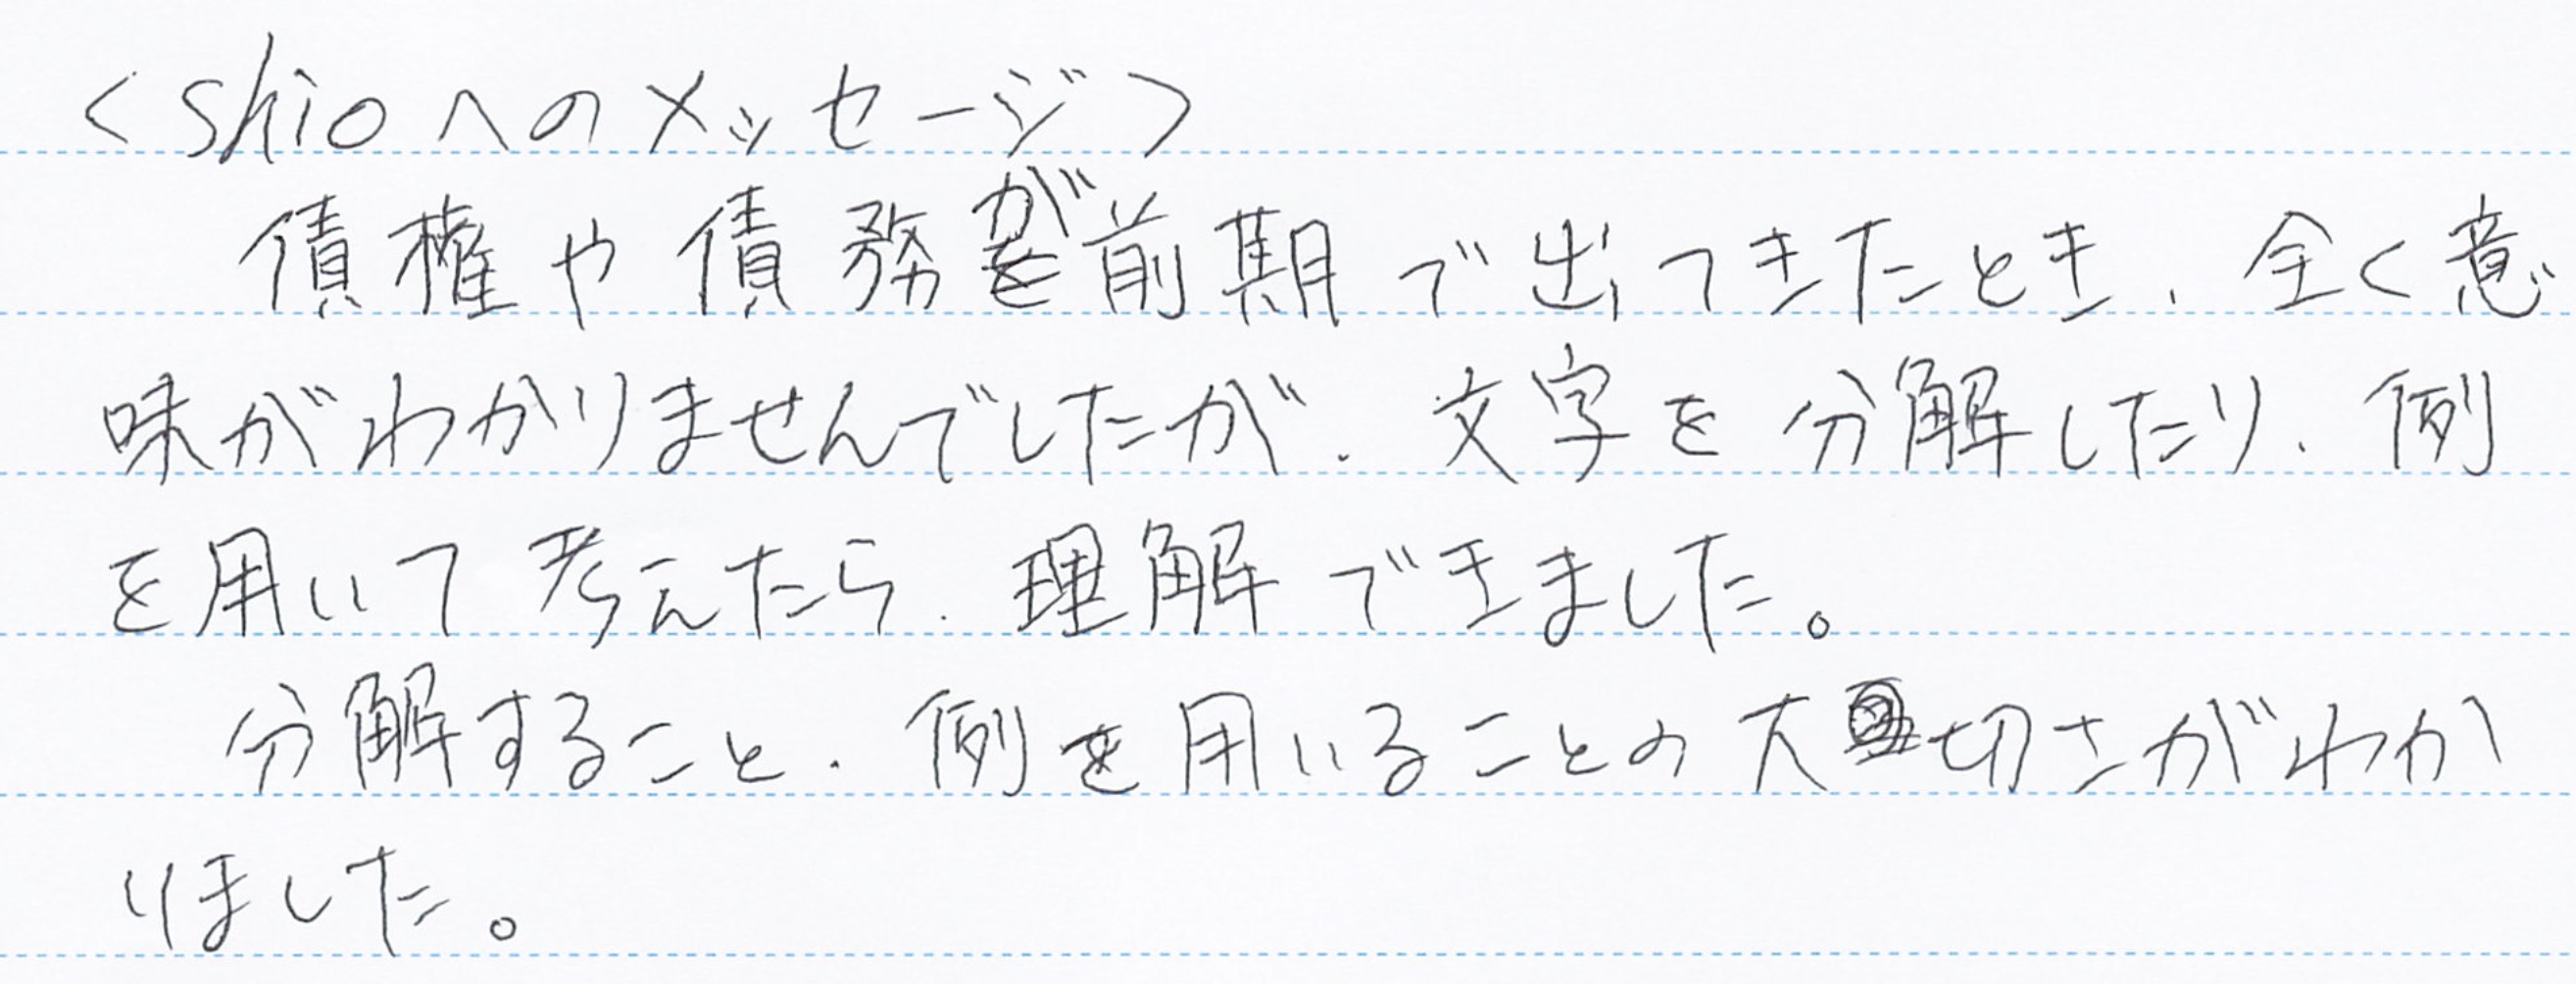 <shioへのメッセージ>
債権や債務が前期で出てきたとき、全く意
味がわかりませんでしたが、文字を分解したり、例
を用いて考えたら、理解できました。
分解すること、例を用いることの大切さがわか
りました。